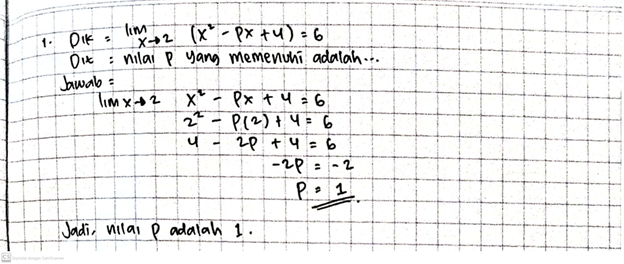 1. Dik = lim x→2 (x² - px + 4) = 6
Dit : nilai p yang memenuhi adalah...
Jawab =
lim x→2 x² - px + 4 = 6
2² - p(2) + 4 = 6
4 - 2p + 4 = 6
-2p = -2
p = 1.
Jadi, nilai p adalah 1.
CS